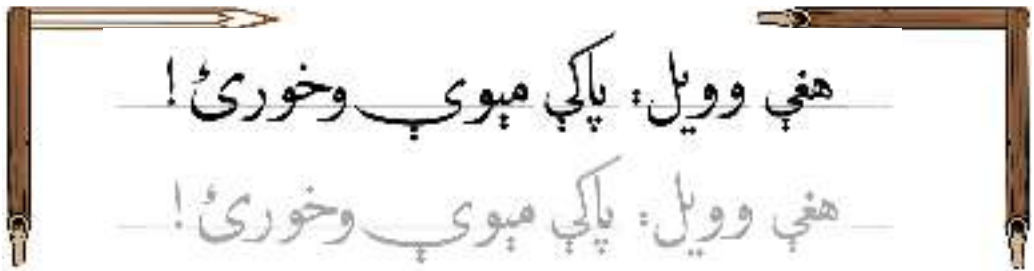 هغې وويل: پاکې مېوې وخورئ!
هغې وويل: پاکې مېوې وخورئ!